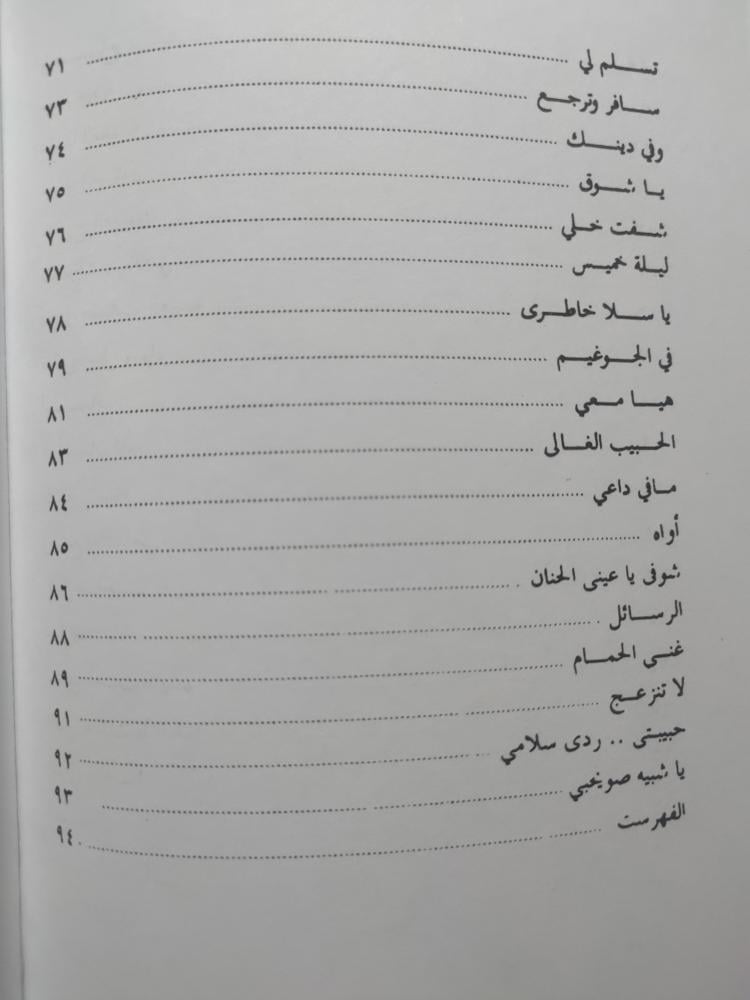 تسلم لي ........ ٧١
سافر وترجع ........ ٧٣
وفي دينك ........ ٧٤
يا شوق ........ ٧٥
شفت خلي ........ ٧٦
ليلة خميس ........ ٧٧
يا سلا خاطرى ........ ٧٨
في الجوغيم ........ ٧٩
هيا معي ........ ٨١
الحبيب الغالى ........ ٨٣
مافي داعي ........ ٨٤
أواه ........ ٨٥
شوفى يا عينى الحنان ........ ٨٦
الرسائل ........ ٨٨
غنى الحمام ........ ٨٩
لا تنزعج ........ ٩١
حبيبتى .. ردى سلامي ........ ٩٢
يا شبيه صويحبي ........ ٩٣
الفهرست ........ ٩٤